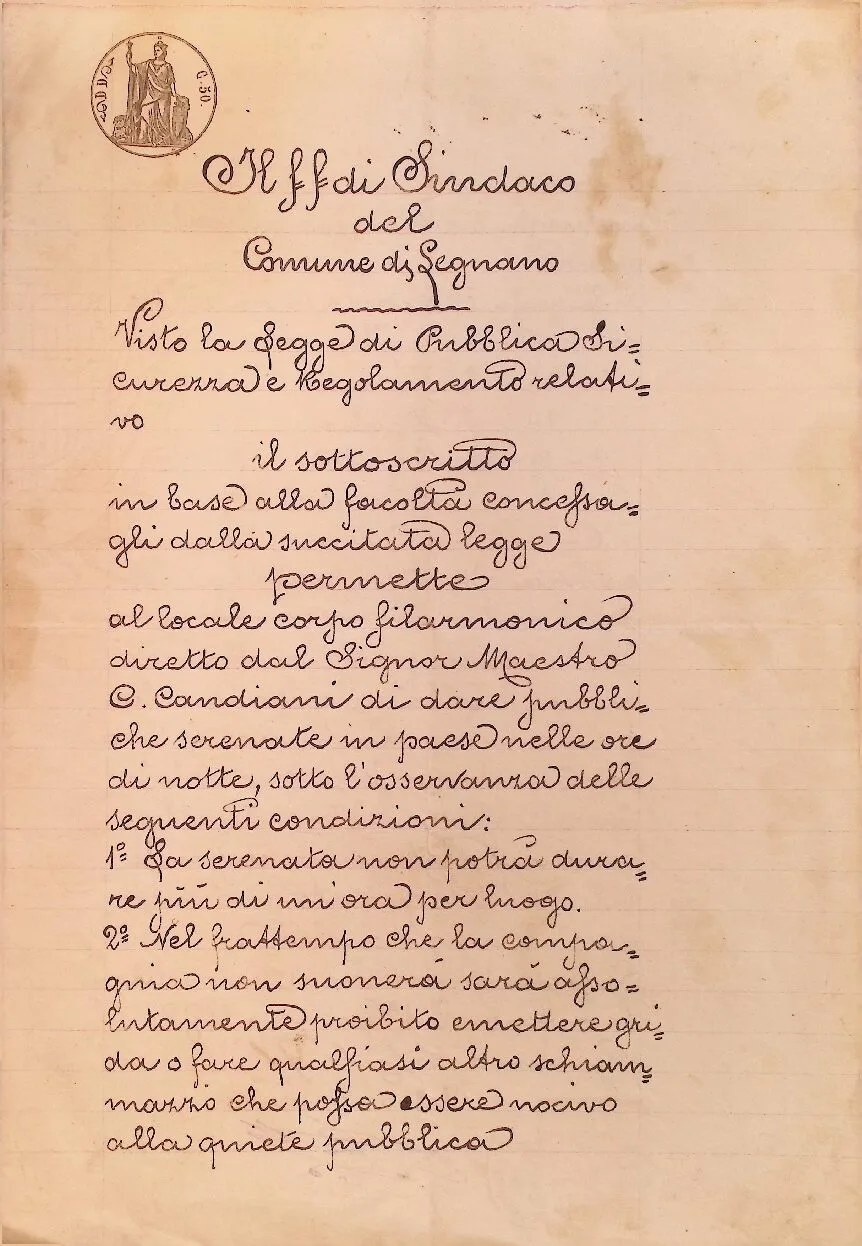 C. 50.
Il ff di Sindaco
del
Comune di Legnano
Visto la Legge di Pubblica Si=
curezza e Regolamento relati=
vo
il sottoscritto
in base alla facoltà concessa=
gli dalla succitata legge
permette
al locale corpo filarmonico
diretto dal Signor Maestro
C. Candiani di dare pubbli=
che serenate in paese nelle ore
di notte, sotto l'osservanza delle
seguenti condizioni:
1º La serenata non potrà dura=
re più di un'ora per luogo.
2º Nel frattempo che la compa=
gnia non suonerà sarà asso=
lutamente proibito emettere gri=
da o fare qualsiasi altro schiam=
mazzo che possa essere nocivo
alla quiete pubblica